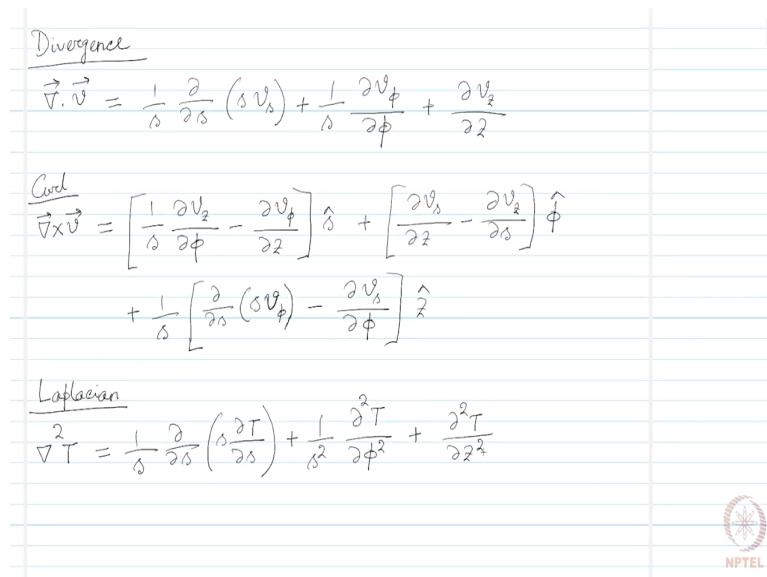 Divergence
∇⃗.v⃗ = 1/s ∂/∂s (s v_s) + 1/s ∂v_ϕ/∂ϕ + ∂v_z/∂z
Curl
∇⃗×v⃗ = [1/s ∂v_z/∂ϕ − ∂v_ϕ/∂z] ŝ + [∂v_s/∂z − ∂v_z/∂s] ϕ̂
+ 1/s [∂/∂s (s v_ϕ) − ∂v_s/∂ϕ] ẑ
Laplacian
∇²T = 1/s ∂/∂s (s ∂T/∂s) + 1/s² ∂²T/∂ϕ² + ∂²T/∂z²
NPTEL